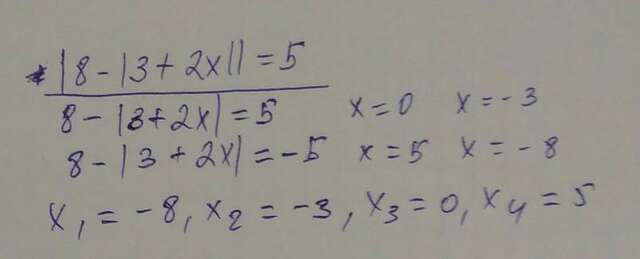 |8-|3+2x||=5
8-|3+2x|=5 x=0 x=-3
8-|3+2x|=-5 x=5 x=-8
x₁=-8, x₂=-3, x₃=0, x₄=5